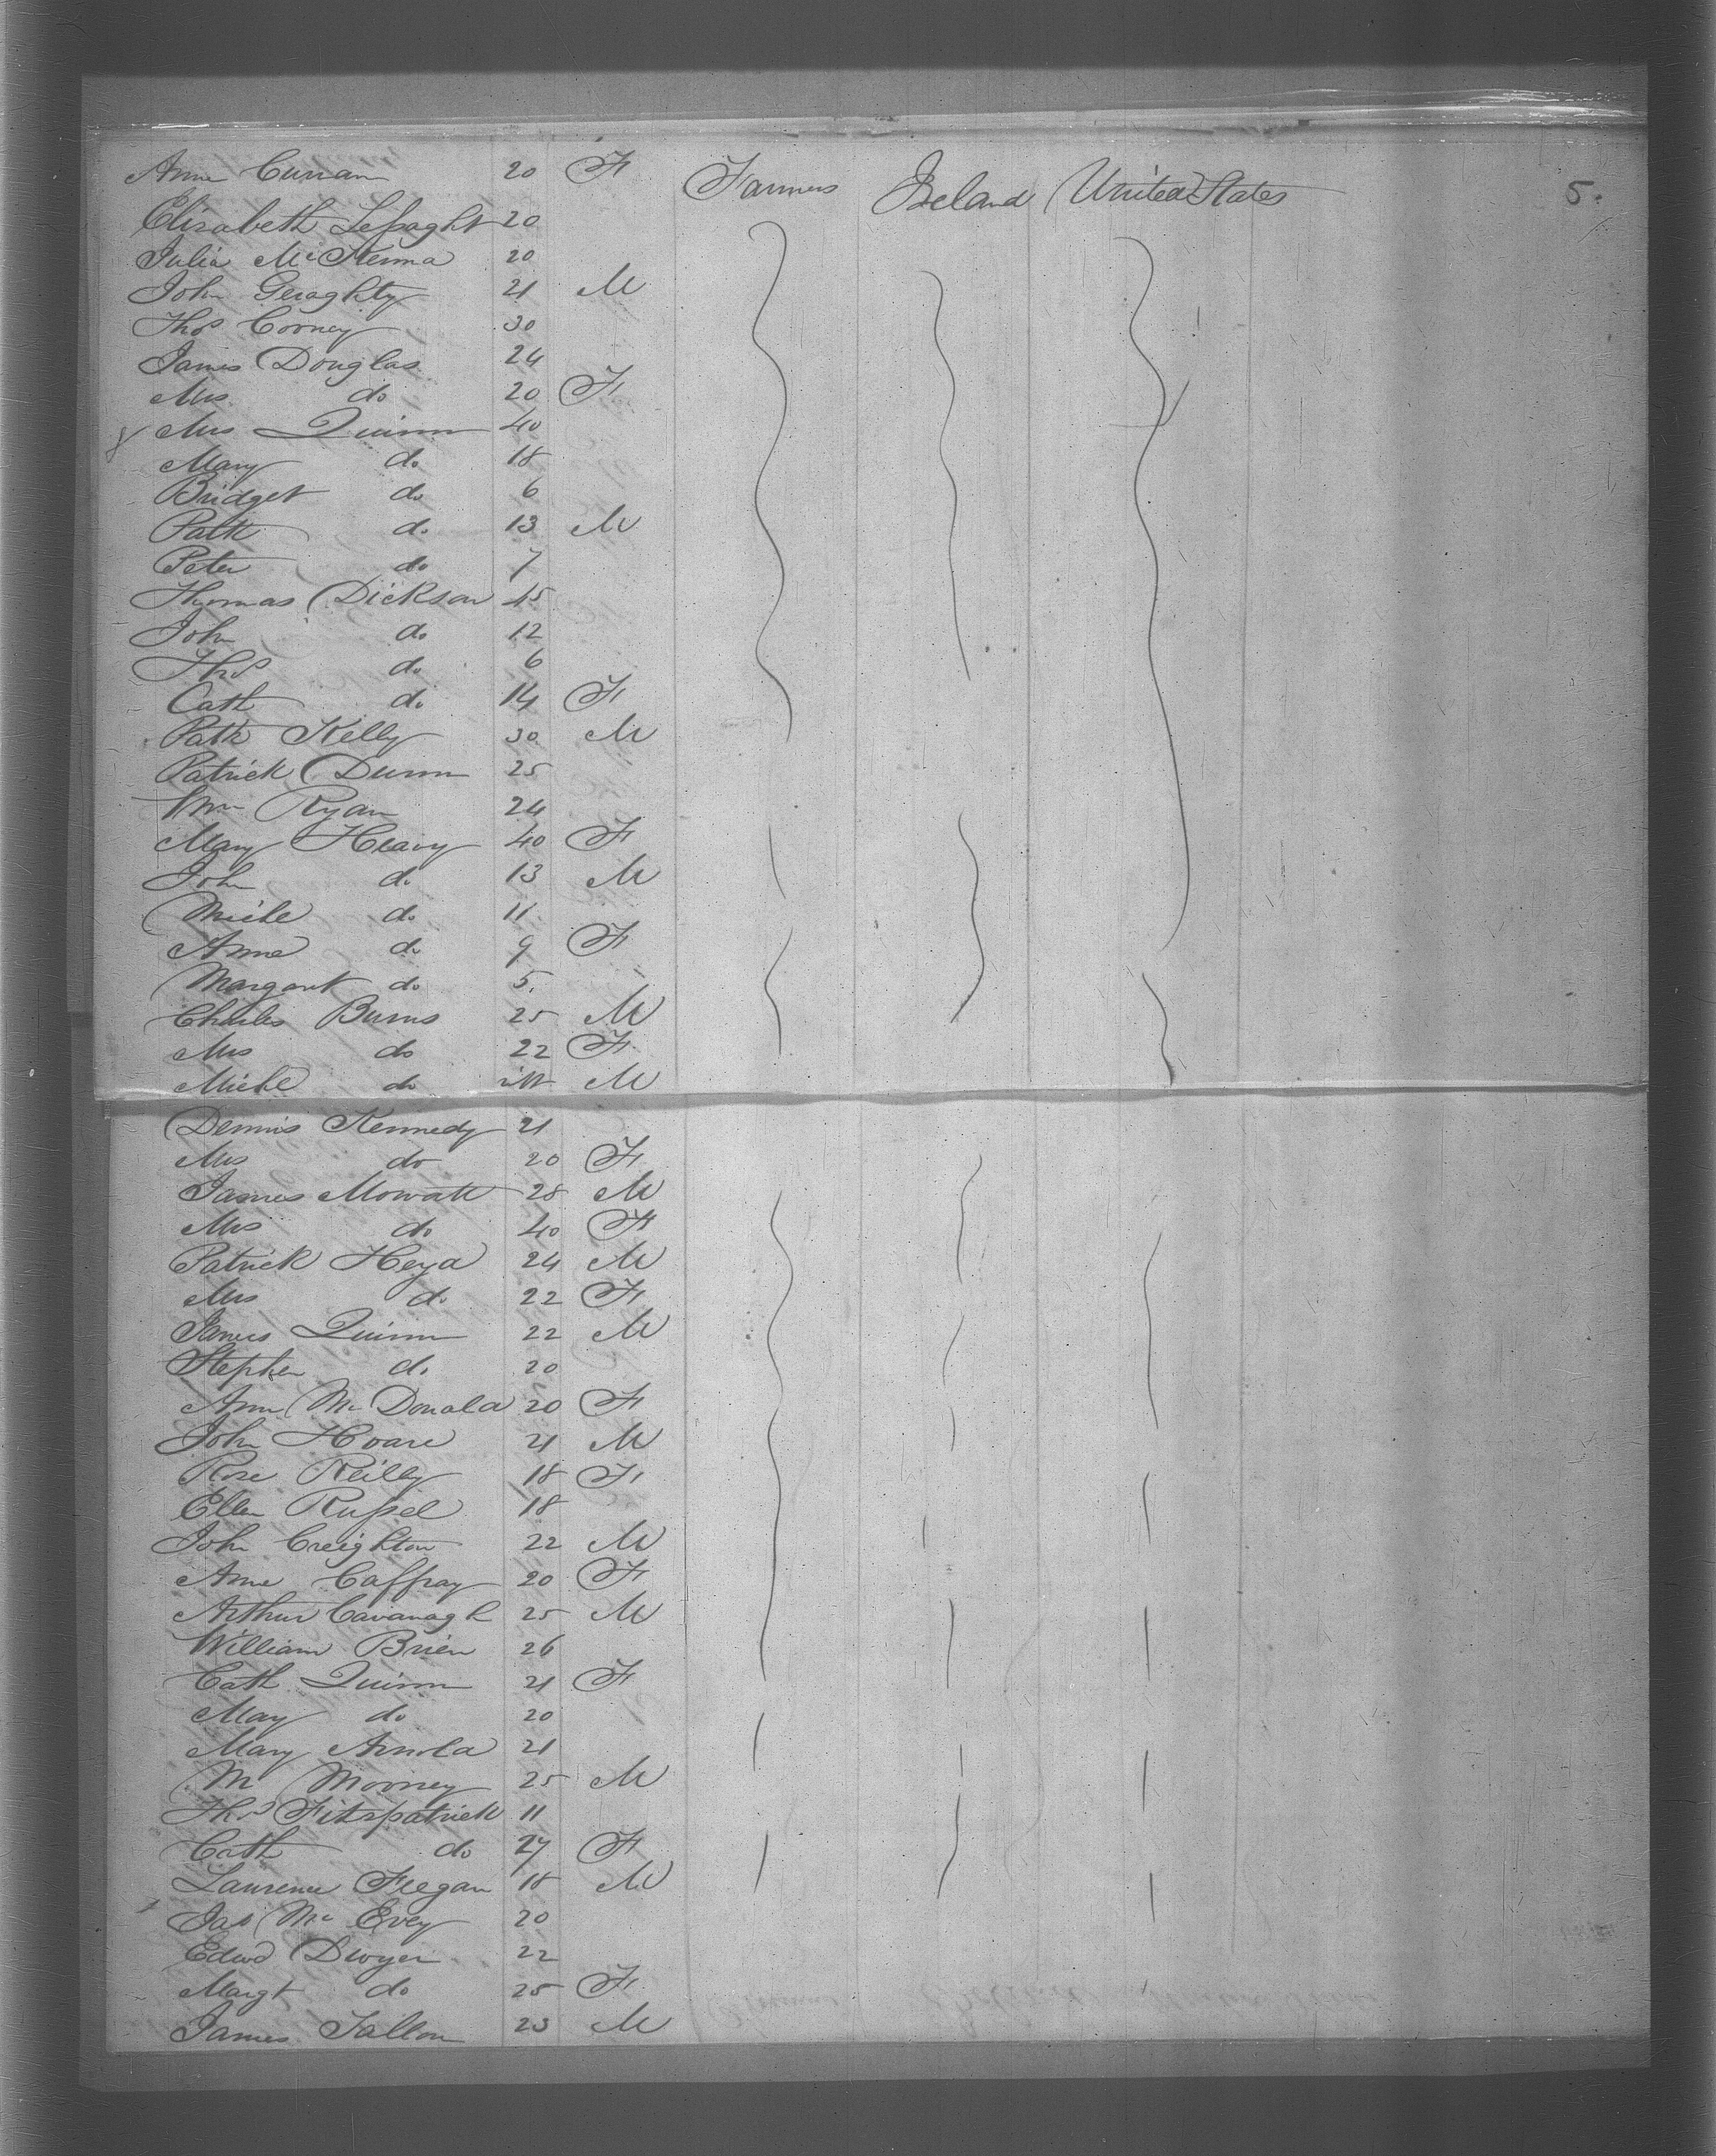 Anne Curran 20 F Farmers Ireland United States 5.
Elizabeth Lessaght 20
Julia McKenna 20
John Geraghty 21 M
Thos Cooney 30
James Douglas 24
Mrs do 20 F
Mrs Quinn 40
Mary do 18
Bridget do 6
Patk do 13 M
Peter do 7
Thomas Dickson 45
John do 12
Thos do 6
Cath do 14 F
Patk Kelly 30 M
Patrick Dunn 25
Wm Ryan 24
Mary Heavy 40 F
John do 13 M
Michl do 11
Anne do 9 F
Margaret do 5.
Charles Burns 25 M
Mrs do 22 F
Michl do inft M
Dennis Kennedy 21
Mrs do 20 F
James Mowatt 28 M
Mrs do 40 F
Patrick Heya 24 M
Mrs do 22 F
James Quinn 22 M
Stephen do 20
Ann McDonald 20 F
John Hoare 21 M
Rose Reilly 18 F
Ellen Russel 18
John Creighton 22 M
Anne Caffray 20 F
Arthur Cavanagh 25 M
William Brien 26
Cath Quinn 21 F
May do 20
Mary Arnold 21
M Mooney 25 M
Thos Fitzpatrick 11
Cath do 27 F
Laurence Feegan 18 M
Jas McEvey 20
Edwd Dwyer 22
Margt do 25 F
James Fallon 23 M